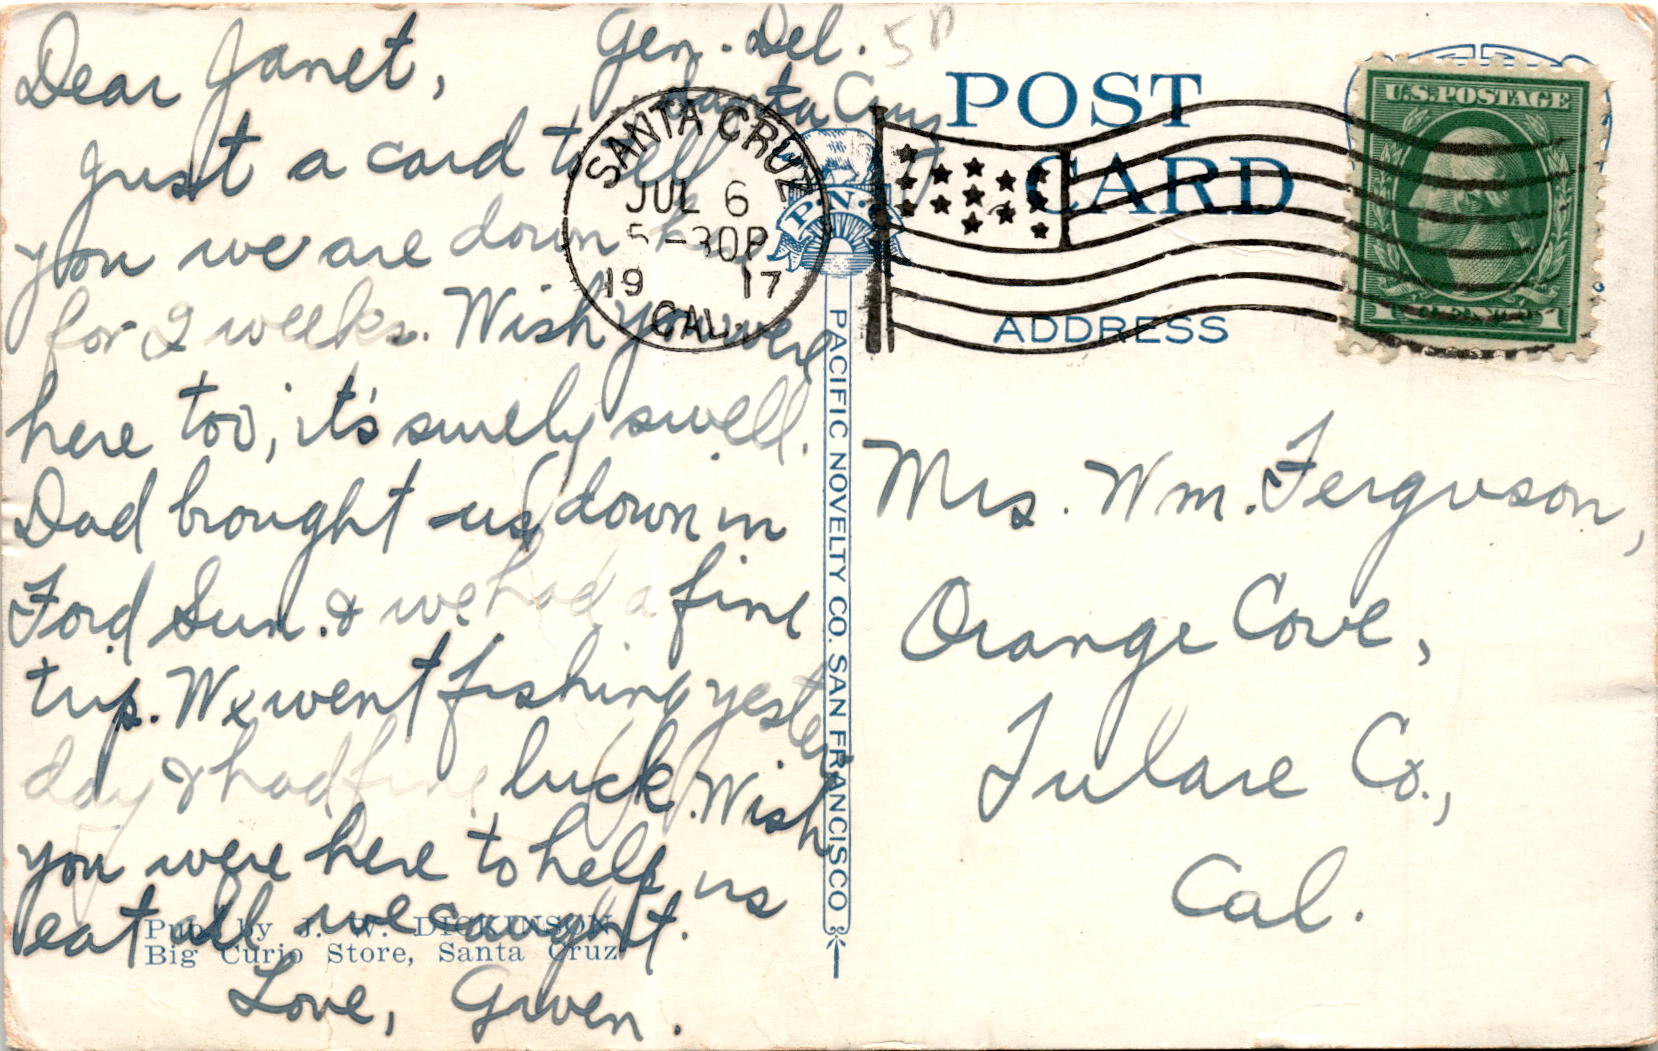 Gen. Del.
Santa Cruz
Dear Janet,
Just a card to tell
you we are down here
for 2 weeks. Wish you were
here too, it's surely swell.
Dad brought us down in
Ford Sun. & we had a fine
trip. We went fishing yester
day & had fine luck. Wish
you were here to help us
eat all we caught.
Love, Gwen.
Pub. by J. W. DICKINSON
Big Curio Store, Santa Cruz
SANTA CRUZ
JUL 6
5-30P
1917
CAL.
P.N.C.
PACIFIC NOVELTY CO. SAN FRANCISCO
POST
CARD
ADDRESS
U.S. POSTAGE
1 1
Mrs. Wm. Ferguson,
Orange Cove,
Tulare Co.,
Cal.